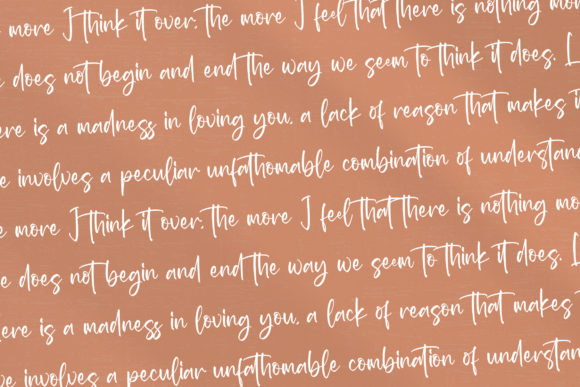 more I think it over, the more I feel that there is nothing mo
does not begin and end the way we seem to think it does. L
ere is a madness in loving you, a lack of reason that makes it
e involves a peculiar unfathomable combination of understan
e more I think it over, the more I feel that there is nothing mo
e does not begin and end the way we seem to think it does. L
here is a madness in loving you, a lack of reason that makes
ve involves a peculiar unfathomable combination of understan